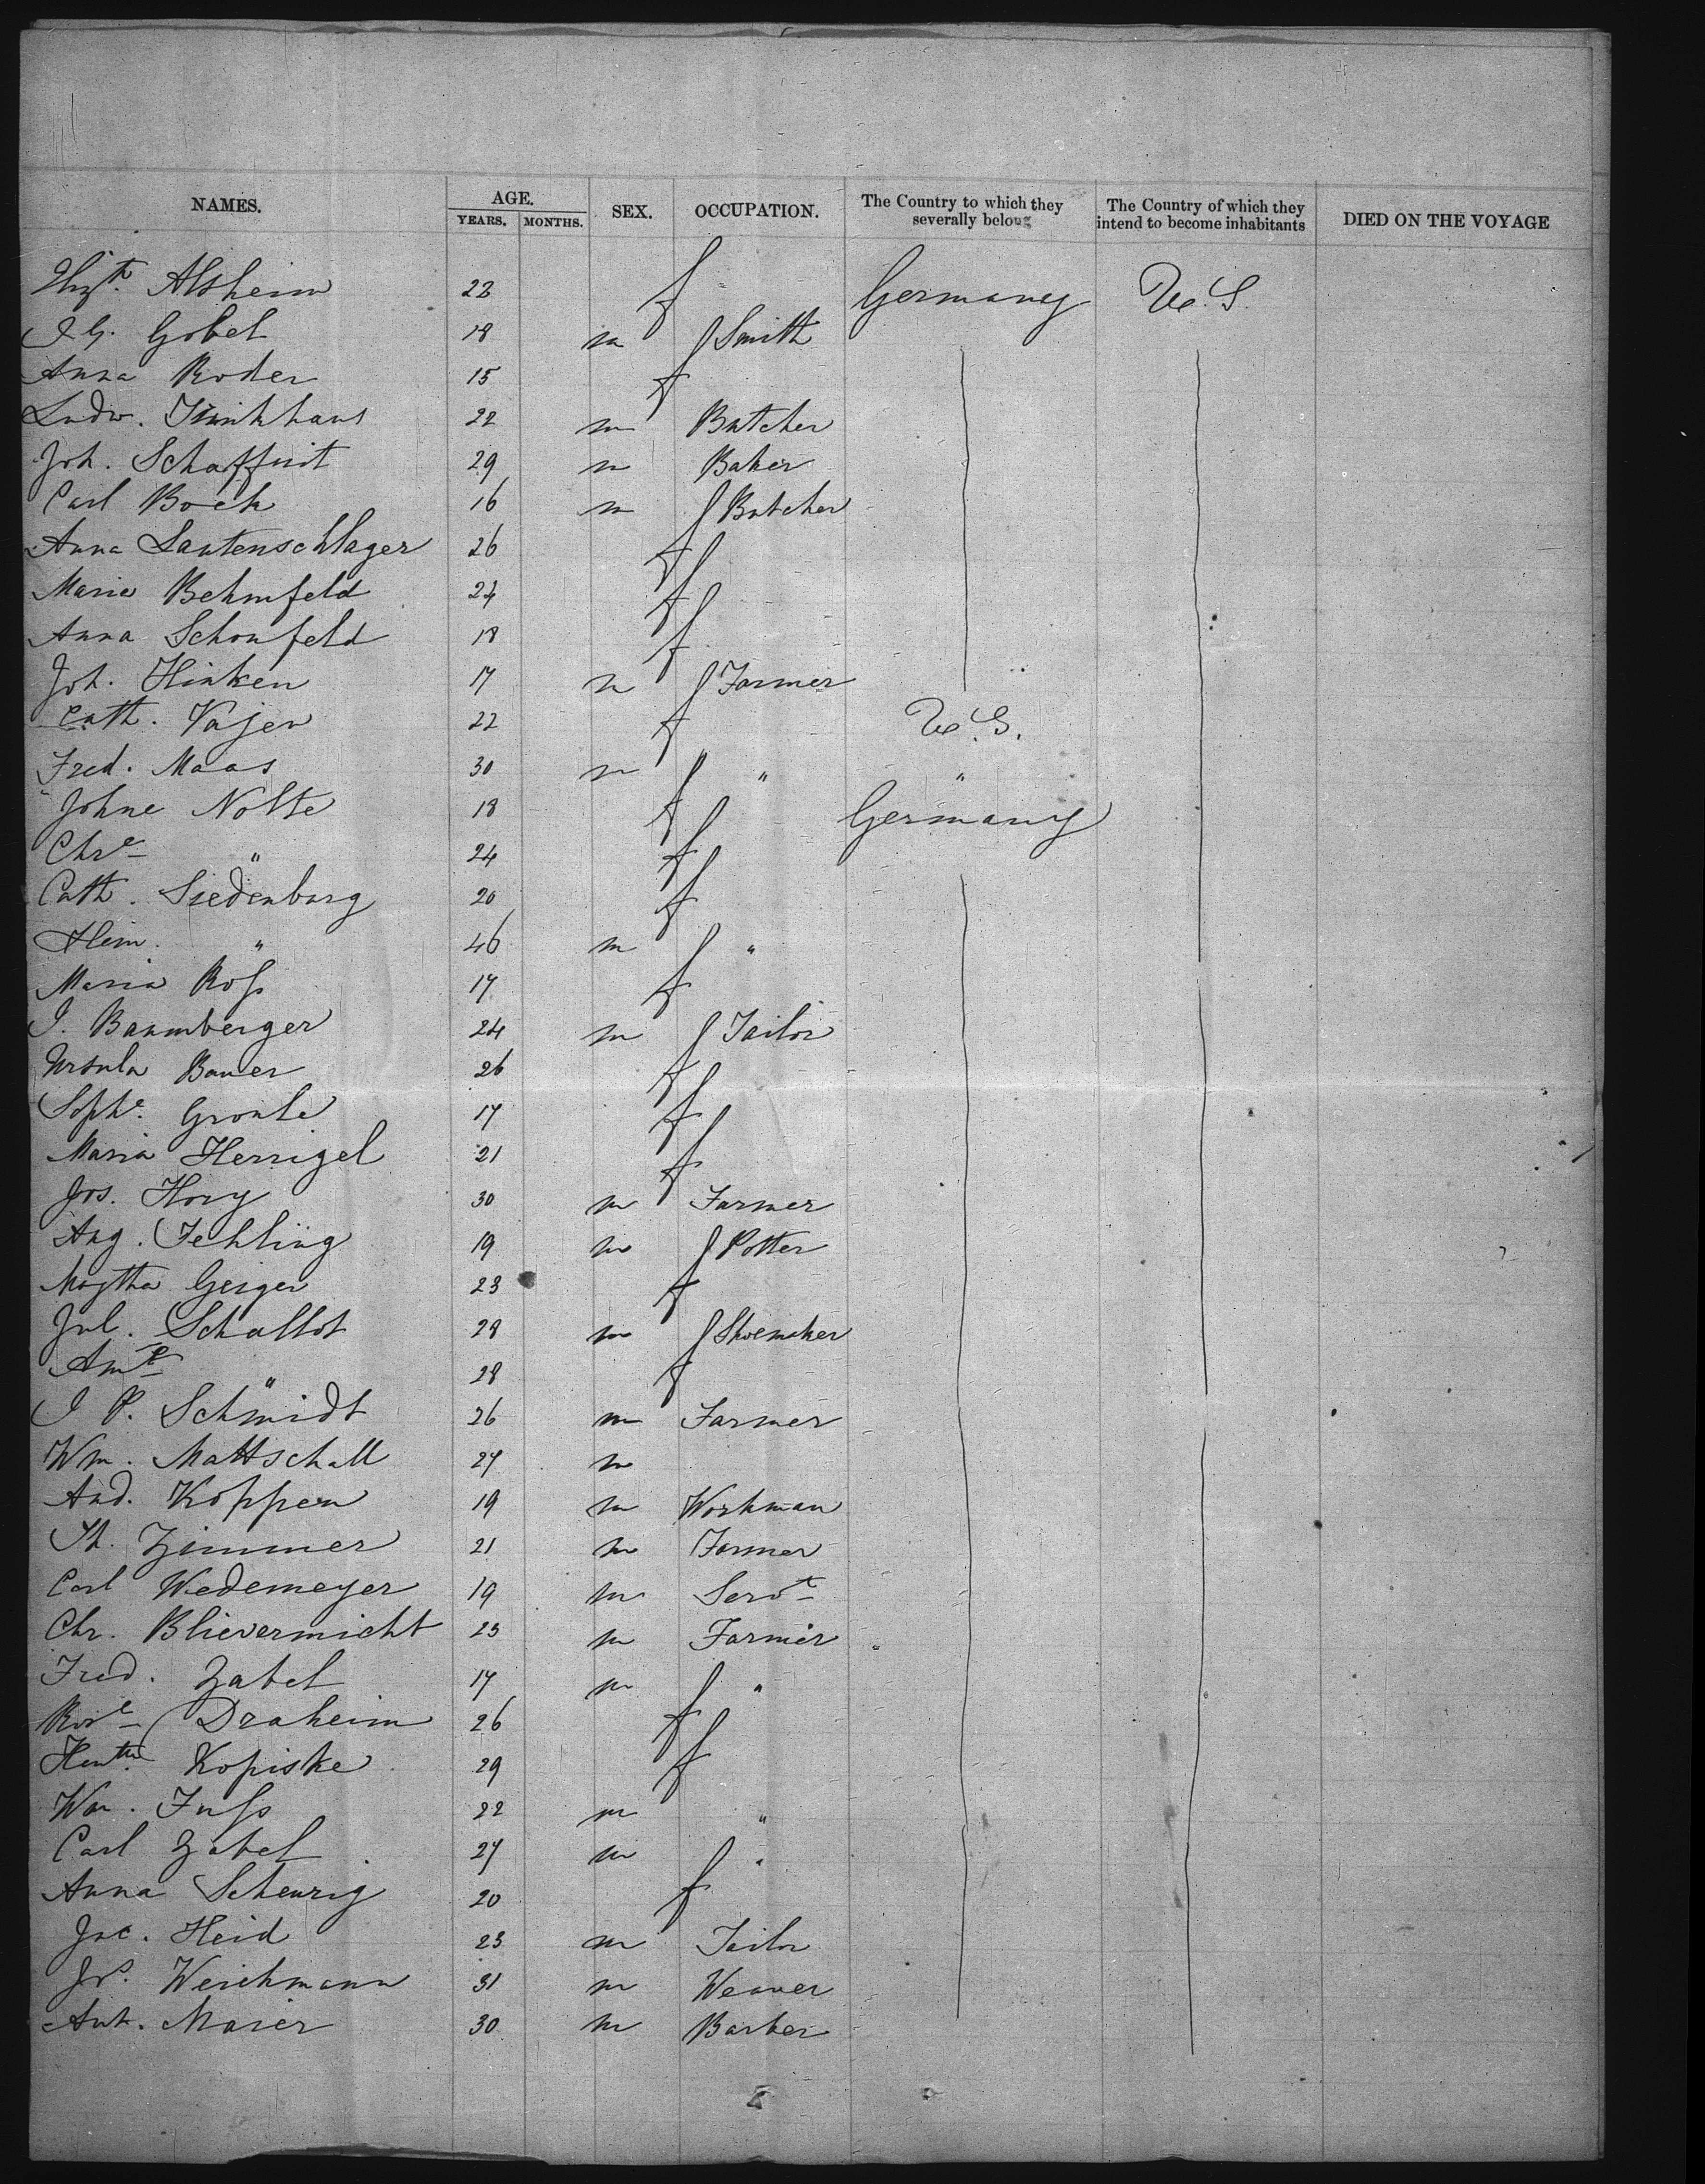 NAMES. AGE. YEARS. MONTHS. SEX. OCCUPATION. The Country to which they severally belong The Country of which they intend to become inhabitants DIED ON THE VOYAGE
Elizth. Alsheim 22 f Germany U.S.
J G. Gobel 18 m Smith
Anna Roder 15 f
Ludw. 22 m Butcher
Joh. Schaffnit 29 m Baker
Carl Bock 16 m Butcher
Anna Lautenschlager 26 f
Marie Behmfeld 24 f
Anna Schonfeld 18 f
Joh. Hinken 17 m Farmer
Cath. Vajen 22 f U.S.
Fred. Maas 30 m " "
Johne Nolte 18 f Germany
Chre " 24 f
Cath. Siedenburg 20 f
Heinr. " 46 m "
Maria Roß 17 f
J. Baumberger 24 m Tailor
Ursula Bauer 26 f
Sophe. Gronle 17 f
Maria Herrigel 21 f
Jos. Hory 30 m Farmer
Aug. Fehling 19 m Potter
Magtha Geiger 23 f
Jul. Schallot 28 m Shoemaker
Ame " 28 f
J P. Schmidt 26 m Farmer
Wm. Mattschall 27 m
And. Koppen 19 m Workman
Th. Zimmer 21 m Farmer
Carl Wedemeyer 19 m Servt
Chr. Blievernicht 23 m Farmer
Fred. Zabel 17 m "
Rose Draheim 26 f
Hentte. Kopiske 29 f
Wm. Fuß 22 m "
Carl Zabel 27 m "
Anna Scheurig 20 f
Jac. Heid 23 m Tailor
Jos. Weichmann 31 m Weaver
Ant. Maier 30 m Barber